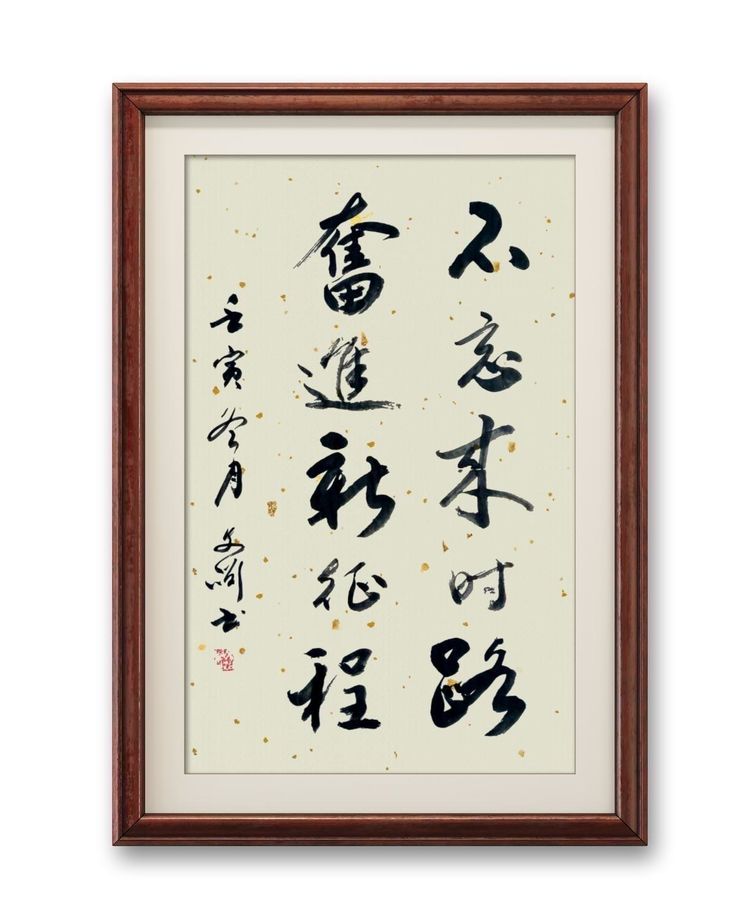 不忘来时路
奮進新征程
壬寅冬月文刚书